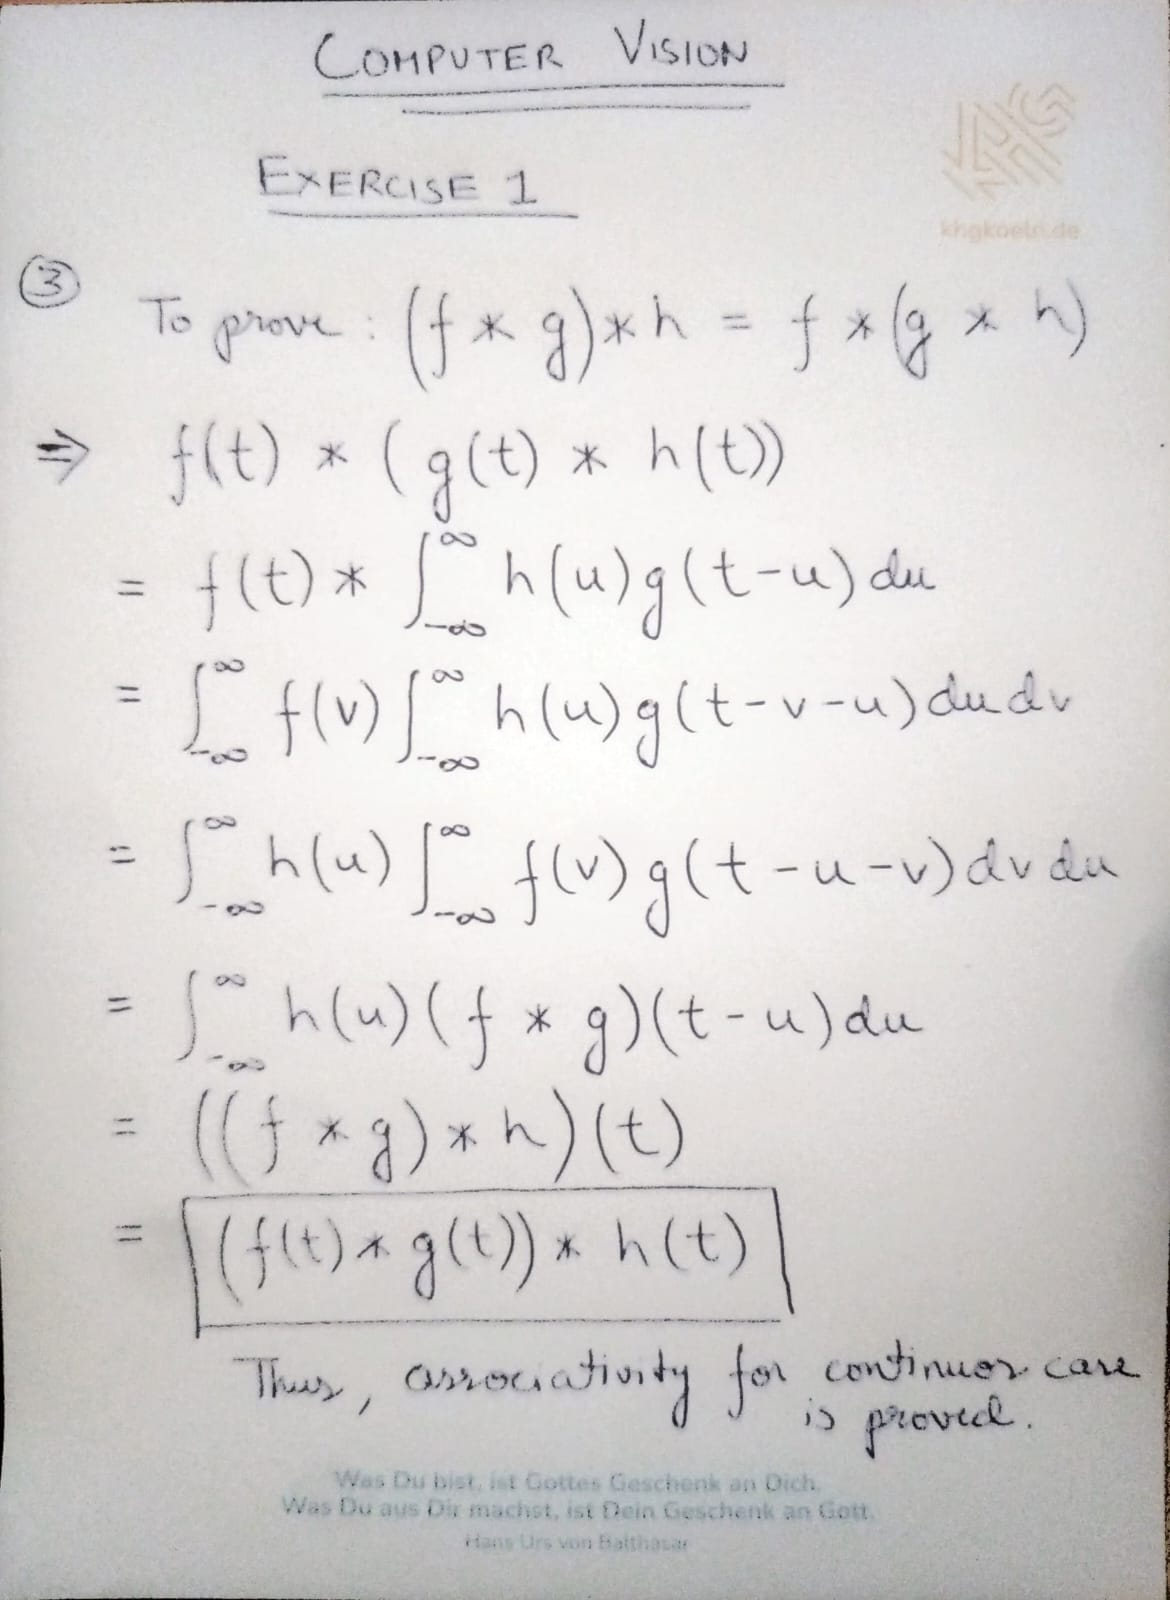 COMPUTER VISION
EXERCISE 1
khgkoeln.de
③
To prove : (f * g) * h = f * (g * h)
⇒ f(t) * (g(t) * h(t))
= f(t) * ∫_{-∞}^{∞} h(u) g(t-u) du
= ∫_{-∞}^{∞} f(v) ∫_{-∞}^{∞} h(u) g(t-v-u) du dv
= ∫_{-∞}^{∞} h(u) ∫_{-∞}^{∞} f(v) g(t-u-v) dv du
= ∫_{-∞}^{∞} h(u) (f * g)(t-u) du
= ((f * g) * h)(t)
= (f(t) * g(t)) * h(t)
Thus, associativity for continuos case
is proved.
Was Du bist, ist Gottes Geschenk an Dich.
Was Du aus Dir machst, ist Dein Geschenk an Gott.
Hans Urs von Balthasar